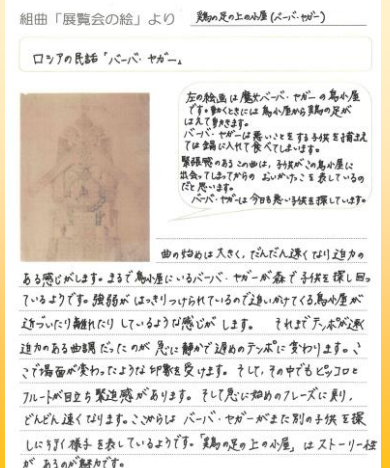 組曲「展覧会の絵」より 鶏の足の上の小屋(バーバ・ヤガー)
ロシアの民話「バーバ・ヤガー」
左の絵画は魔女バーバ・ヤガーの鳥小屋
です。動くときには鳥小屋から鶏の足が
はえて動きます。
バーバ・ヤガーは悪いことをする子供を捕まえ
ては鍋に入れて食べてしまいます。
緊張感のあるこの曲は、子供がこの鳥小屋に
出会ってしまってからの おいかけっこ を表しているの
だと思います。
バーバ・ヤガーは今日も悪い子供を探しています。
曲の始めは大きく、だんだん速くなり迫力の
ある感じがします。まるで鳥小屋にいるバーバ・ヤガーが森で子供を探し回っ
ているようです。強弱が はっきりつけられているので追いかけてくる鳥小屋が
近づいたり離れたり しているような感じが します。 それまでテンポが速く
迫力のある曲調だったのが 急に静かで遅めのテンポに変わります。こ
こで場面が変わったような 印象を受けます。そして、その中でもピッコロと
フルートが目立ち緊迫感があります。そして急に始めのフレーズに戻り、
どんどん速くなります。ここからは バーバ・ヤガーがまた別の子供を探
しに行く様子を表しているようです。「鶏の足の上の小屋」は ストーリー性
が あるのが魅力です。